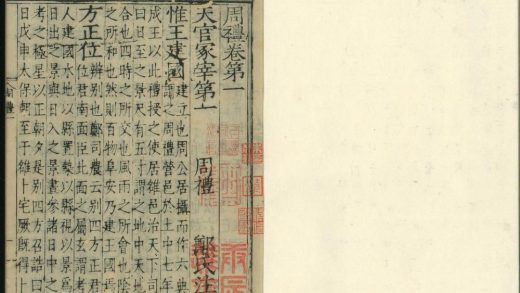 周禮卷第一
天官冢宰第一 周禮 鄭氏注
惟王建國 建立也周公居攝而作六典
謂之周禮營邑於土中七年
成王以此禮授之使居雒邑治天下司
曰日至之景尺有五寸謂之地中天地
合也四時之所交也風雨之所會也陰
之所和也然則百物阜安乃建王國焉
方正位 辨別也鄭司農云別四方正君
位君南面臣北面之屬玄謂考
人建國水地以縣置槷以縣視以景爲
日出之景與日入之景晝參諸日中之
考之極星以正朝夕是別四方召誥曰
日戊申太保朝至于雒卜宅厥既得卜